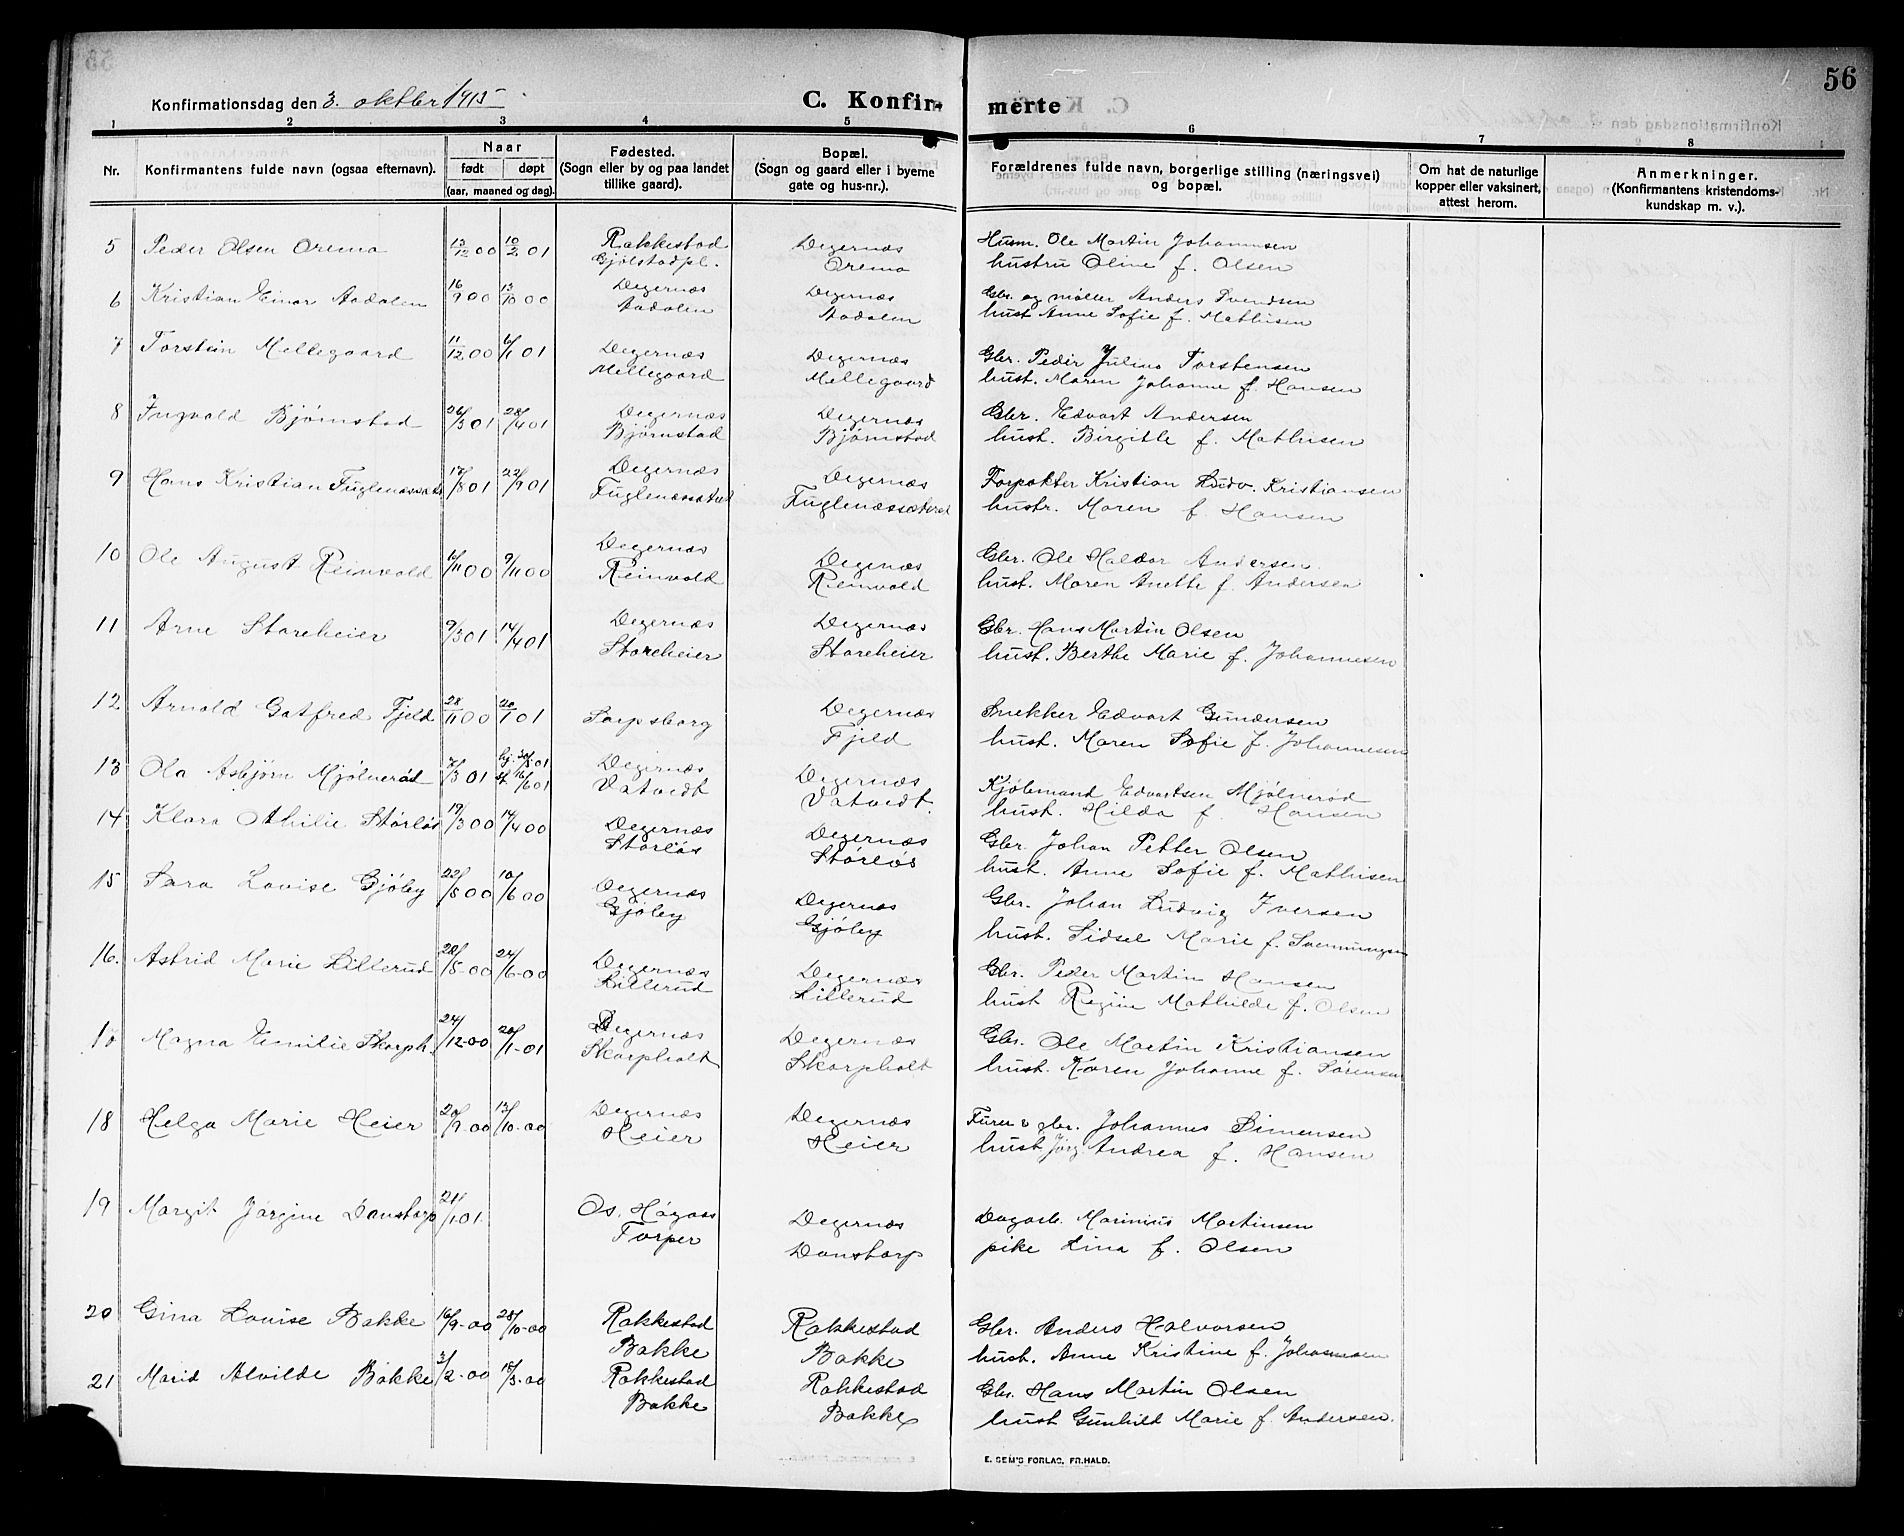 56
Konfirmationsdag den 3. oktbr 1915
C. Konfir- merte
1 2 3 4 5 6 7 8
Nr.
Konfirmantens fulde navn (ogsaa efternavn).
Naar
født døpt
(aar, maaned og dag).
Fødested.
(Sogn eller by og paa landet
tillike gaard).
Bopæl.
(Sogn og gaard eller i byerne
gate og hus-nr.).
Forældrenes fulde navn, borgerlige stilling (næringsvei)
og bopæl.
Om hat de naturlige
kopper eller vaksinert,
attest herom.
Anmerkninger.
(Konfirmantens kristendoms-
kundskap m. v.).
5 Peder Olsen Oremo 13/12 00 10/2 01 Rakkestad Degernæs Husm. Ole Martin Johannsen
Gjølstadpl. Oremo hustru Oline f. Olsen
6 Kristian Einar Aadalen 16/9 00 13/10 00 Degernæs Degernæs Gbr. og møller Anders Svendsen
Aadalen Aadalen hust Anne Sofie f. Mathisen
7 Torstein Mellegaard 11/12 00 6/1 01 Degernæs Degernæs Gbr. Peder Julius Torstensen
Mellegaard Mellegaard hust. Maren Johanne f. Hansen
8 Ingvald Bjørnstad 26/3 01 28/4 01 Degernæs Degernæs Gbr. Edvart Andersen
Bjørnstad Bjørnstad hust. Birgitte f. Mathisen
9 Hans Kristian Fuglenessæt 17/8 01 22/9 01 Degernæs Degernæs Forpakter Kristian Ludv. Kristiansen
Fuglenæssæteret Fuglenæssæteret hustr. Maren f. Hansen
10 Ole August Reinvold 00 9/11 00 Degernæs Degenæs Gbr. Ole Haldor Andersen
Reinvold Reinvold hust. Maren Anette f. Andersen
11 Arne Storeheier 9/3 01 14/4 01 Degernæs Degernæs Gbr. Hans Martin Olsen
Storeheier Storeheier hust. Berthe Marie f. Johannesen
12 Arnold Gotfred Fjeld 28/11 00 20/1 01 Sarpsborg Degernæs Snekker Edvart Gundersen
Fjeld hust. Maren Sofie f. Johannesen
13 Ola Asbjørn Mjølnerød 7/3 01 hj. 30/3 01 Degernæs Degernæs Kjøbmand Edvartsen Mjølnerød
st. 16/6 01 Vatvedt Vatvedt. hust. Hilda f. Hansen
14 Klara Othilie Størløs 19/3 00 14/4 00 Degernæs Degernæs Gbr. Johan Petter Olsen
Størløs Størløs hust. Anne Sofie f. Mathisen
15 Sara Lovise Gjøley 22/5 00 10/6 00 Degernæs Degernæs Gbr. Johan Ludvig Iversen
Gjøley Gjøley hust. Sidsel Marie f. Svenningsen
16. Astrid Marie Lillerud 28/5-00 24/6-00 Degernæs Degernæs Gbr. Peder Martin Hansen
Lillerud Lillerud hust Regine Mathilde f. Olsen
Magna Emilie Skorph. 24/12-00 20/1-01 Degernæs Degernæs Gbr. Ole Martin Kristiansen
Skorpholt Skorpholt hust. Karen Johanne f. Sørensen
18 Helga Marie Heier 20/9-00 13/10-00 Degernæs Degernæs gbr. Johannes Simensen
Heier Heier hust Jørg Andrea f. Hansen
19 Margit Jørgine Danstorp 21/1 01. Os. Degernæs Dagarb. Marinius Martinsen
Torper Danstorp pike Lina f. Olsen
20 Gina Lovise Bakke 16/9-00 28/10-00 Rakkestad Rakkestad Gbr. Anders Halvorsen
Bakke Bakke hust. Anne Kristine f. Johannesen
21 Marid Alvilde Bakke 3/2-00 18/3-00 Rakkestad Rakkestad Gbr. Hans Martin Olsen
Bakke Bakke hust Gunhild Marie f. Andersen.
E. SEM'S FORLAG, FR.HALD.